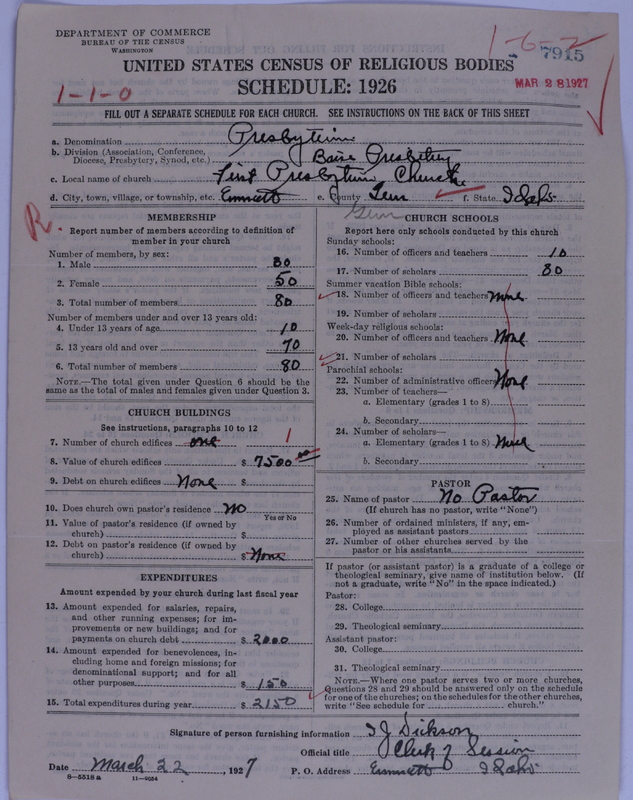 DEPARTMENT OF COMMERCE
BUREAU OF THE CENSUS
WASHINGTON
1-6-2
7915
UNITED STATES CENSUS OF RELIGIOUS BODIES
MAR 28 1927
SCHEDULE: 1926
1-1-0
FILL OUT A SEPARATE SCHEDULE FOR EACH CHURCH. SEE INSTRUCTIONS ON THE BACK OF THIS SHEET
a. Denomination Presbyterian
b. Division (Association, Conference, Diocese, Presbytery, Synod, etc.) Boise Presbytery
c. Local name of church First Presbyterian Church
d. City, town, village, or township, etc. Emmett e. County Gem f. State Idaho
Gem
R.
MEMBERSHIP
Report number of members according to definition of
member in your church
Number of members, by sex:
1. Male 30
2. Female 50
3. Total number of members 80
Number of members under and over 13 years old:
4. Under 13 years of age 10
5. 13 years old and over 70
6. Total number of members 80
NOTE.—The total given under Question 6 should be the
same as the total of males and females given under Question 3.
CHURCH BUILDINGS
See instructions, paragraphs 10 to 12
7. Number of church edifices one 1
8. Value of church edifices $ 7500 00
9. Debt on church edifices None $
10. Does church own pastor's residence No
Yes or No
11. Value of pastor's residence (if owned by
church) $
12. Debt on pastor's residence (if owned by
church) $ None
EXPENDITURES
Amount expended by your church during last fiscal year
13. Amount expended for salaries, repairs,
and other running expenses; for im-
provements or new buildings; and for
payments on church debt $ 2000
14. Amount expended for benevolences, in-
cluding home and foreign missions; for
denominational support; and for all
other purposes $ 150
15. Total expenditures during year $ 2150
CHURCH SCHOOLS
Report here only schools conducted by this church
Sunday schools:
16. Number of officers and teachers 10
17. Number of scholars 80
Summer vacation Bible schools:
18. Number of officers and teachers None
19. Number of scholars
Week-day religious schools:
20. Number of officers and teachers None
21. Number of scholars
Parochial schools:
22. Number of administrative officers None
23. Number of teachers—
a. Elementary (grades 1 to 8)
b. Secondary
24. Number of scholars—
a. Elementary (grades 1 to 8) None
b. Secondary
PASTOR
25. Name of pastor No Pastor
(If church has no pastor, write "None")
26. Number of ordained ministers, if any, em-
ployed as assistant pastors
27. Number of other churches served by the
pastor or his assistants
If pastor (or assistant pastor) is a graduate of a college or
theological seminary, give name of institution below. (If
not a graduate, write "No" in the space indicated.)
Pastor:
28. College
29. Theological seminary
Assistant pastor:
30. College
31. Theological seminary
NOTE.—Where one pastor serves two or more churches,
Questions 28 and 29 should be answered only on the schedule
for one of the churches; on the schedules for the other churches,
write "See schedule for church."
Signature of person furnishing information I J Dickson
Official title Clerk of Session
Date March 22, 1927 P. O. Address Emmett Idaho
8-5518 a 11-9054